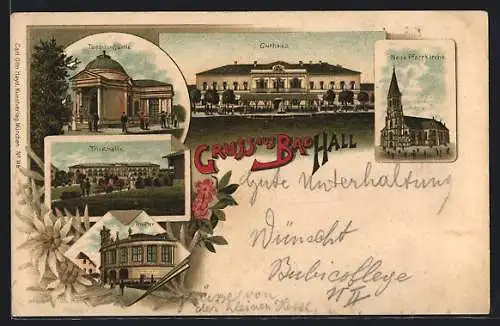 Carl Otto Hayd, Kunstverlag, München. Nº 918
Curhaus
Neue Pfarrkirche
Trinkhalle
Theater
Gruss aus Bad Hall
Gute Unterhaltung
Wünscht
Bubicollege
N II
Grüsse von
der kleinen